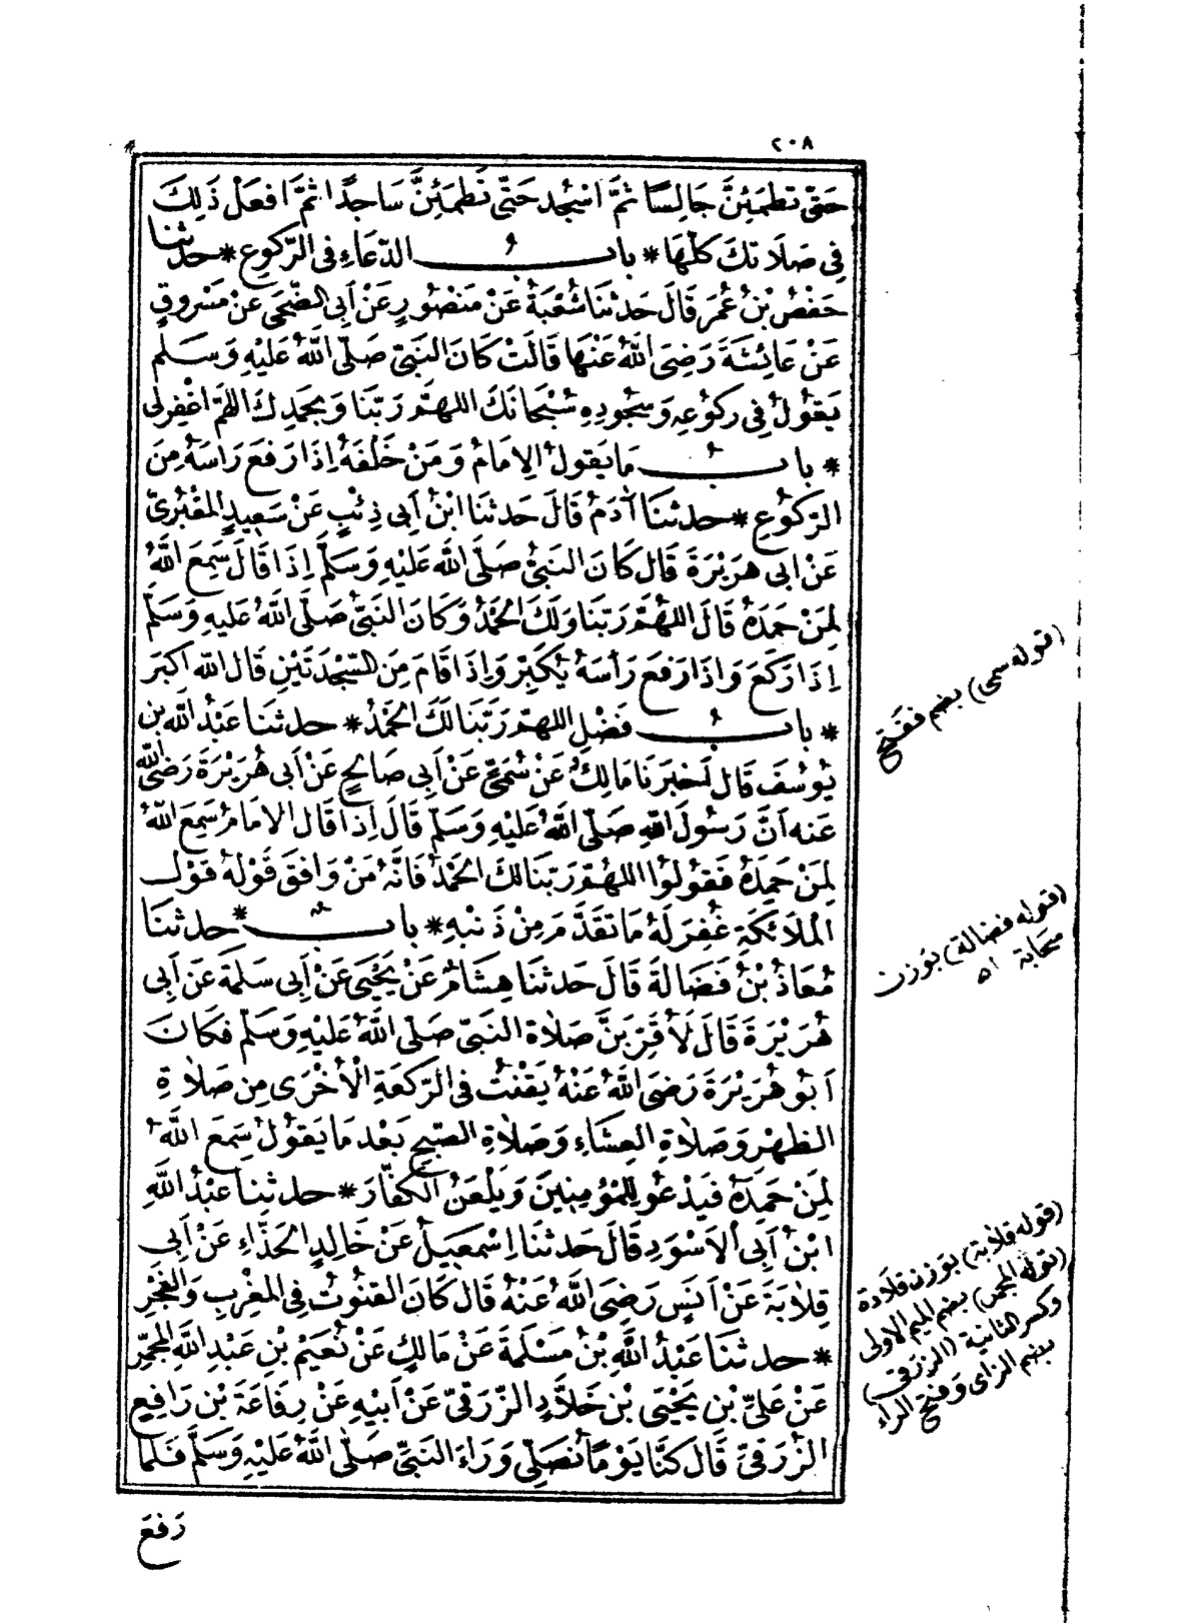 ٢٠٨
حَتّى تطمَئِنَّ جَالِسًا ثمَّ اسْجُد حَتّى تَطمَئِنَّ سَاجِدًا ثمَّ افعَلْ ذَلِكَ
فِى صَلَاتكَ كلّهَا * بابُ الدّعَاءِ فى الرّكوعِ * حدثنا
حَفْصُ بْنُ عُمَرَ قَالَ حَدثنَا شُعْبَةُ عَنْ مَنصُورٍ عَنْ اَبى الضّحَى عَنْ مَسْروقٍ
عَنْ عَائِشَةَ رَضِىَ اللّٰهُ عَنْهَا قَالَتْ كانَ النبىّ صَلّى اللّٰهُ عَلَيْهِ وَسَلّم
يَقولُ فِى ركوُعِهِ وَسُجُودِهِ سُبْحَانَكَ اللهمّ رَبّنَا وَبحَمدِكَ اللهمّ اغْفِرلى
* بابُ مَا يَقولُ الِامَامُ وَمَنْ خَلْفَهُ اِذَا رَفعَ رَاسَهُ مِنَ
الرّكوُعِ * حدثنَا آدَمُ قَالَ حَدثنَا ابْنُ اَبى ذِئبٍ عَنْ سَعِيدٍ المَقْبُرِىّ
عَنْ ابى هرَيْرَةَ قَال كَانَ النبىُّ صَلّى اللّٰه عَلَيْهِ وَسَلّم اِذَا قَالَ سَمِعَ اللّٰهُ
لِمَنْ حَمِدَهُ قَالَ اللهُمَّ رَبّنَا وَلَكَ الحَمْدُ وَكانَ النَبّىُ صَلّى اللّٰهُ عَليهِ وَسَلّم
اِذَا رَكَعَ وَاِذَا رَفعَ رَأسَهُ يُكَبِّر وَاِذَا قَامَ مِنَ السّجْدَتَيْنِ قَال اللّٰه اكبَر
* بابُ فَضْلِ اللهمّ رَبّنَا لَكَ الحَمْدُ * حدثنَا عَبْدُ اللّٰه بن
يوُسُفَ قَال اَخبَرَنَا مَالِكٌ عَنْ سُمَىٍّ عَنْ اَبِى صَالحٍ عَنْ اَبى هُرَيْرَةَ رَضىَ اللّٰه
عَنه اَنَّ رَسُولَ اللّٰهِ صَلّى اللّٰهُ عَلَيْهِ وَسَلّم قَالَ اِذَا قَال الامَامُ سَمِعَ اللّٰهُ
لِمَنْ حَمِدَهُ فقوُلوُا اللهُمّ رَبّنَا لكَ الحَمْدُ فَانّهُ مَنْ وَافقَ قَوْلهُ قَوْل
الْمَلَائِكَةِ غُفِرَ لَهُ مَا تَقَدَّمَ مِنْ ذَنبْهِ * بابُ * حدثنَا
مُعَاذُ بْنُ فَضَالَةَ قَالَ حَدثنَا هِشَامٌ عَنْ يَحْيَى عَنْ اَبِى سَلمَةَ عَن اَبِى
هُرَيْرَةَ قَالَ لَأُقَرِّبَنَّ صَلاة النَبىّ صَلّى اللّٰهُ عَلَيْهِ وَسَلّم فكَانَ
اَبُو هُرَيْرَةَ رَضىَ اللّٰهُ عَنْهُ يَقنُتُ فى الرّكعَةِ الْأُخْرَى مِن صَلاةِ
الظهْر وَصَلاةِ العِشَاءِ وَصَلاةِ الصّبحِ بَعْدَ مَا يَقوُلُ سَمِعَ اللّٰهُ
لِمَنْ حَمِدَهُ فَيَدْعُو لِلمُؤْمِنِينَ وَيَلْعَنُ الكفّارَ * حدثنا عَبْدُ اللّٰهِ
ابْنُ اَبِى الاَسْوَدِ قَالَ حَدثنَا اِسْمعِيلُ عَنْ خَالِدٍ الحَذّاءِ عَنْ اَبِى
قِلابَةَ عَنْ اَنَسٍ رَضِىَ اللّٰهُ عَنْهُ قَالَ كانَ القنُوتُ فِى المَغْرِبِ وَالفَجْرِ
* حدثنَا عَبْدُ اللّٰهِ بْنُ مَسْلَمَةَ عَنْ مَالِكٍ عَنْ نُعَيْمِ بْنِ عَبْدِ اللّٰهِ المُجْمِرِ
عَنْ عَلِىِّ بْنِ يَحْيَى بْنِ خَلّادٍ الزّرَقىّ عَنْ اَبيْهِ عَنْ رِفَاعَةَ بْن رَافِعٍ
الزُّرَقىّ قَالَ كنَّا يَوْمًا نُصَلّى وَرَاءَ النَبىِّ صَلّى اللّٰهُ عَلَيْهِ وَسَلّم فَلمّا
رَفعَ
(قوله سمى) بضم ففتح
(قوله فضالة) بوزن
سحابة اه
(قوله قلابة) بوزن قلادة
(قوله المجمر) بضم الميم الاولى
وكسر الثانية (الزرقى)
بضم الزاى وفتح الراء